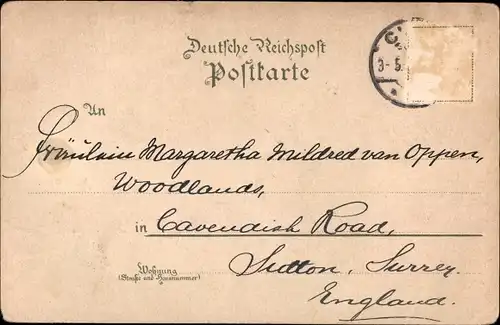 Deutsche Reichspost
Postkarte
3- 5.
An
Fräulein Margaretha Mildred van Oppen,
Woodlands,
in Cavendish Road,
Wohnung
(Straße und Hausnummer)
Sutton, Surrey.
England.